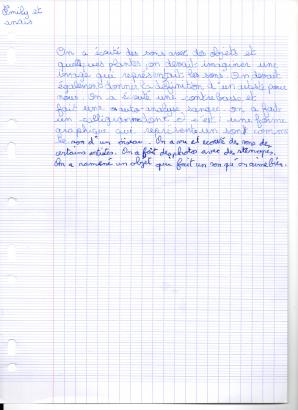 Emily et
anaïs
On a écouté des sons avec des objets et
quelques plantes, on devait imaginer une
image qui représentait les sons. On devait
également donner la définition d'un musée pour
nous. On a écouté une contrebasse et
fait une sonore. On a fait
un calligramme c'est une forme
graphique qui représente un son comme
le son d'un oiseau. On a vu et écouté de sons de
certains artistes. On a fait des photos avec des sténopés.
On a ramené un objet qui fait un son qu'on aime bien.